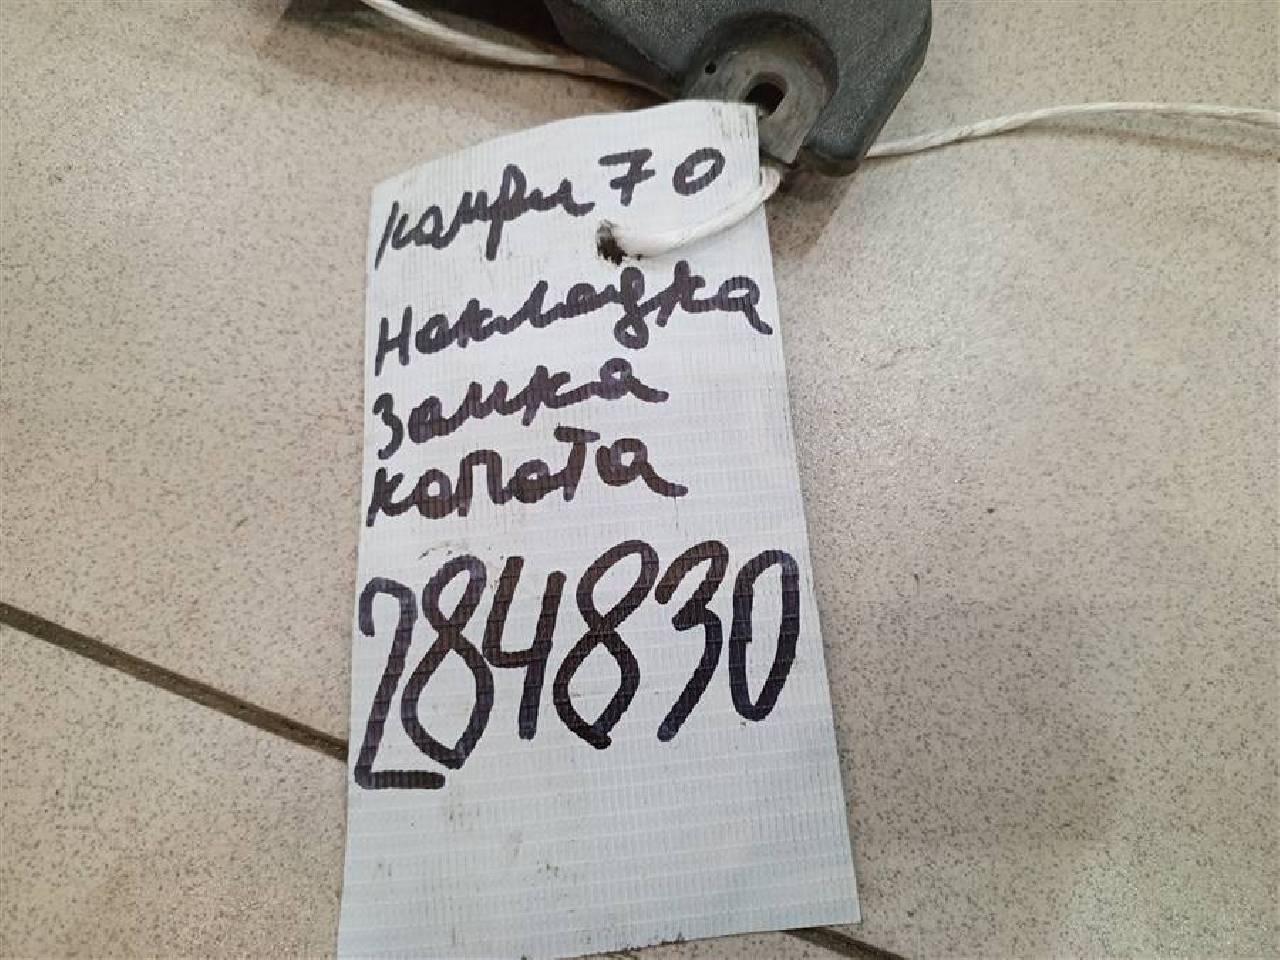 камри 70
Накладка
Замка
капота
284830